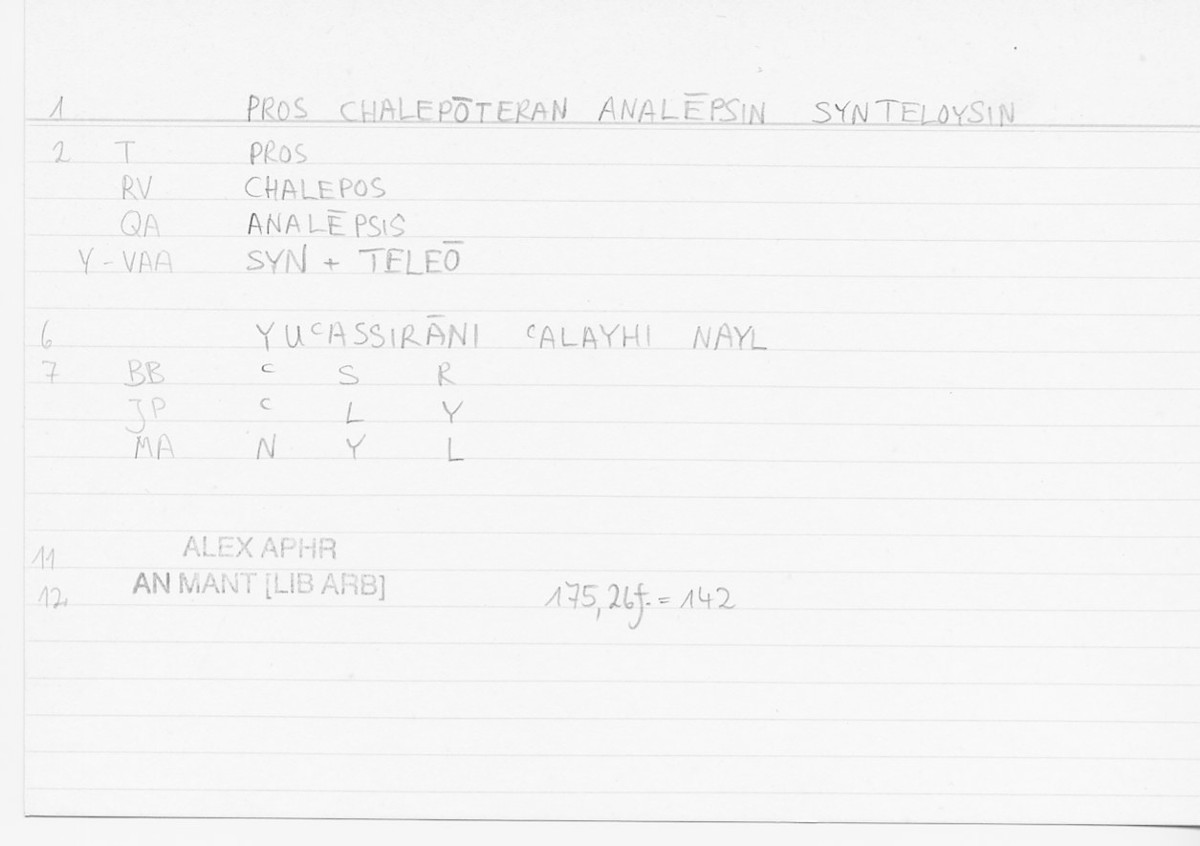 1 PROS CHALEPŌTERAN ANALĒPSIN SYNTELOYSIN
2 T PROS
RV CHALEPOS
QA ANALĒPSIS
Y-VAA SYN + TELEŌ
6 YUᶜASSIRĀNI ᶜALAYHI NAYL
7 BB ᶜ S R
JP ᶜ L Y
MA N Y L
11 ALEX APHR
12 AN MANT [LIB ARB] 175,26f. = 142